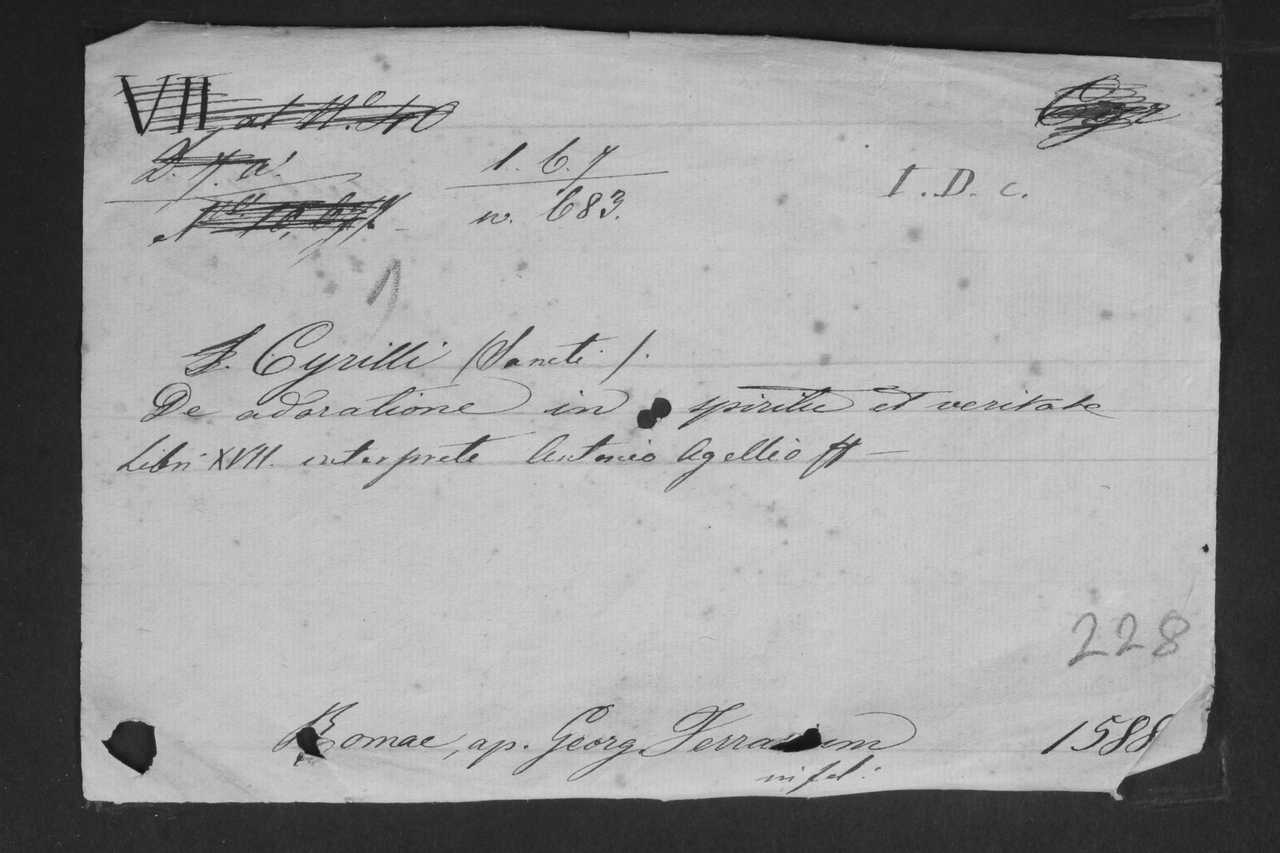 VII, at N.º 40
D. 7. a! 1. 6. 7
n. 683.
I. D. c.
1
S. Cyrilli (Sancti.).
De adoratione in spiritu et veritate
Libri XVII. interprete Antonio Agellio ff —
228
Romae, ap. Georg. Ferrarium 1588
in fol: